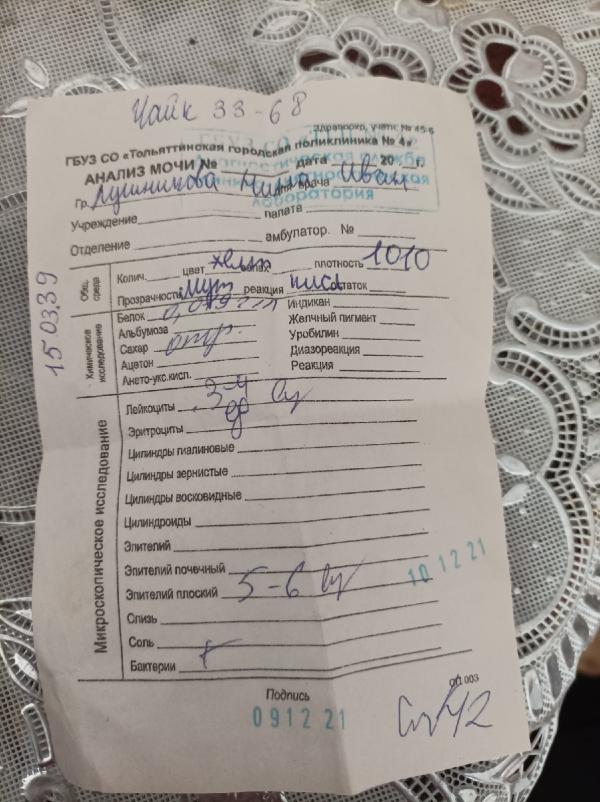 Чайк 33-68
Здравоохр. учетн. № 45-б
ГБУЗ СО «Тольяттинская городская поликлиника № 4»
АНАЛИЗ МОЧИ № дата 20 г.
Гр. Лушникова Нина Иван
Учреждение палата
Отделение амбулатор. №
15 03 39
Общ. среда
Колич. цвет желт запах плотность 1010
Прозрачность мут реакция кисл остаток
Химическое исследование
Белок Индикан
Альбумоза Желчный пигмент
Сахар отр. Уробилин
Ацетон Диазореакция
Ацето-укс.кисл. Реакция
Микроскопическое исследование
Лейкоциты 3-4
Эритроциты ед
Цилиндры гиалиновые
Цилиндры зернистые
Цилиндры восковидные
Цилиндроиды
Эпителий
Эпителий почечный
Эпителий плоский 5-6
10 12 21
Слизь
Соль
Бактерии +
Подпись
ОД 003
09 12 21